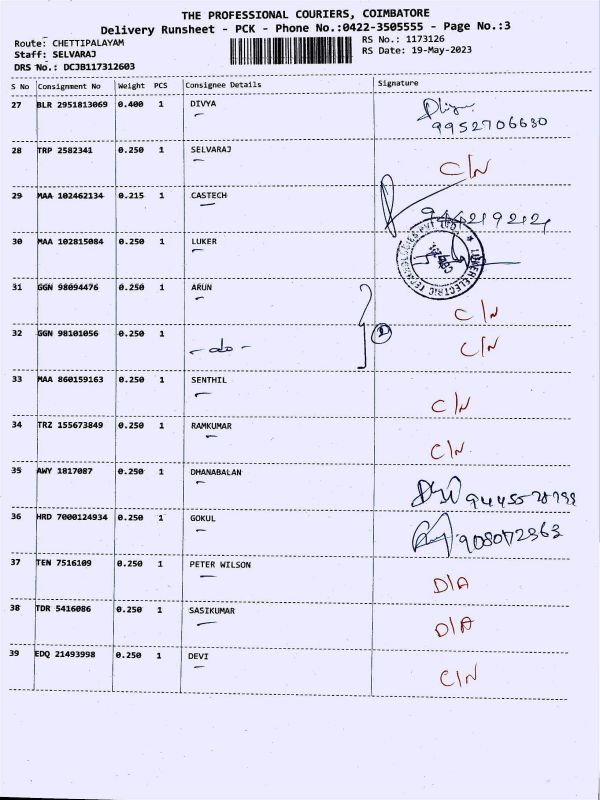 THE PROFESSIONAL COURIERS, COIMBATORE
Delivery Runsheet - PCK - Phone No.:0422-3505555 - Page No.:3
Route: CHETTIPALAYAM RS No.: 1173126
Staff: SELVARAJ RS Date: 19-May-2023
DRS No.: DCJB117312603
S No Consignment No Weight PCS Consignee Details Signature
27 BLR 2951813069 0.400 1 DIVYA
9952706680
28 TRP 2582341 0.250 1 SELVARAJ C/N
29 MAA 102462134 0.215 1 CASTECH
30 MAA 102815084 0.250 1 LUKER
31 GGN 98094476 0.250 1 ARUN C/N
32 GGN 98101056 0.250 1 -do- 2 C/N
33 MAA 860159163 0.250 1 SENTHIL C/N
34 TRZ 155673849 0.250 1 RAMKUMAR C/N
35 AWY 1817087 0.250 1 DHANABALAN
36 HRD 7000124934 0.250 1 GOKUL
37 TEN 7516109 0.250 1 PETER WILSON D/A
38 TDR 5416086 0.250 1 SASIKUMAR D/A
39 EDQ 21493998 0.250 1 DEVI C/N